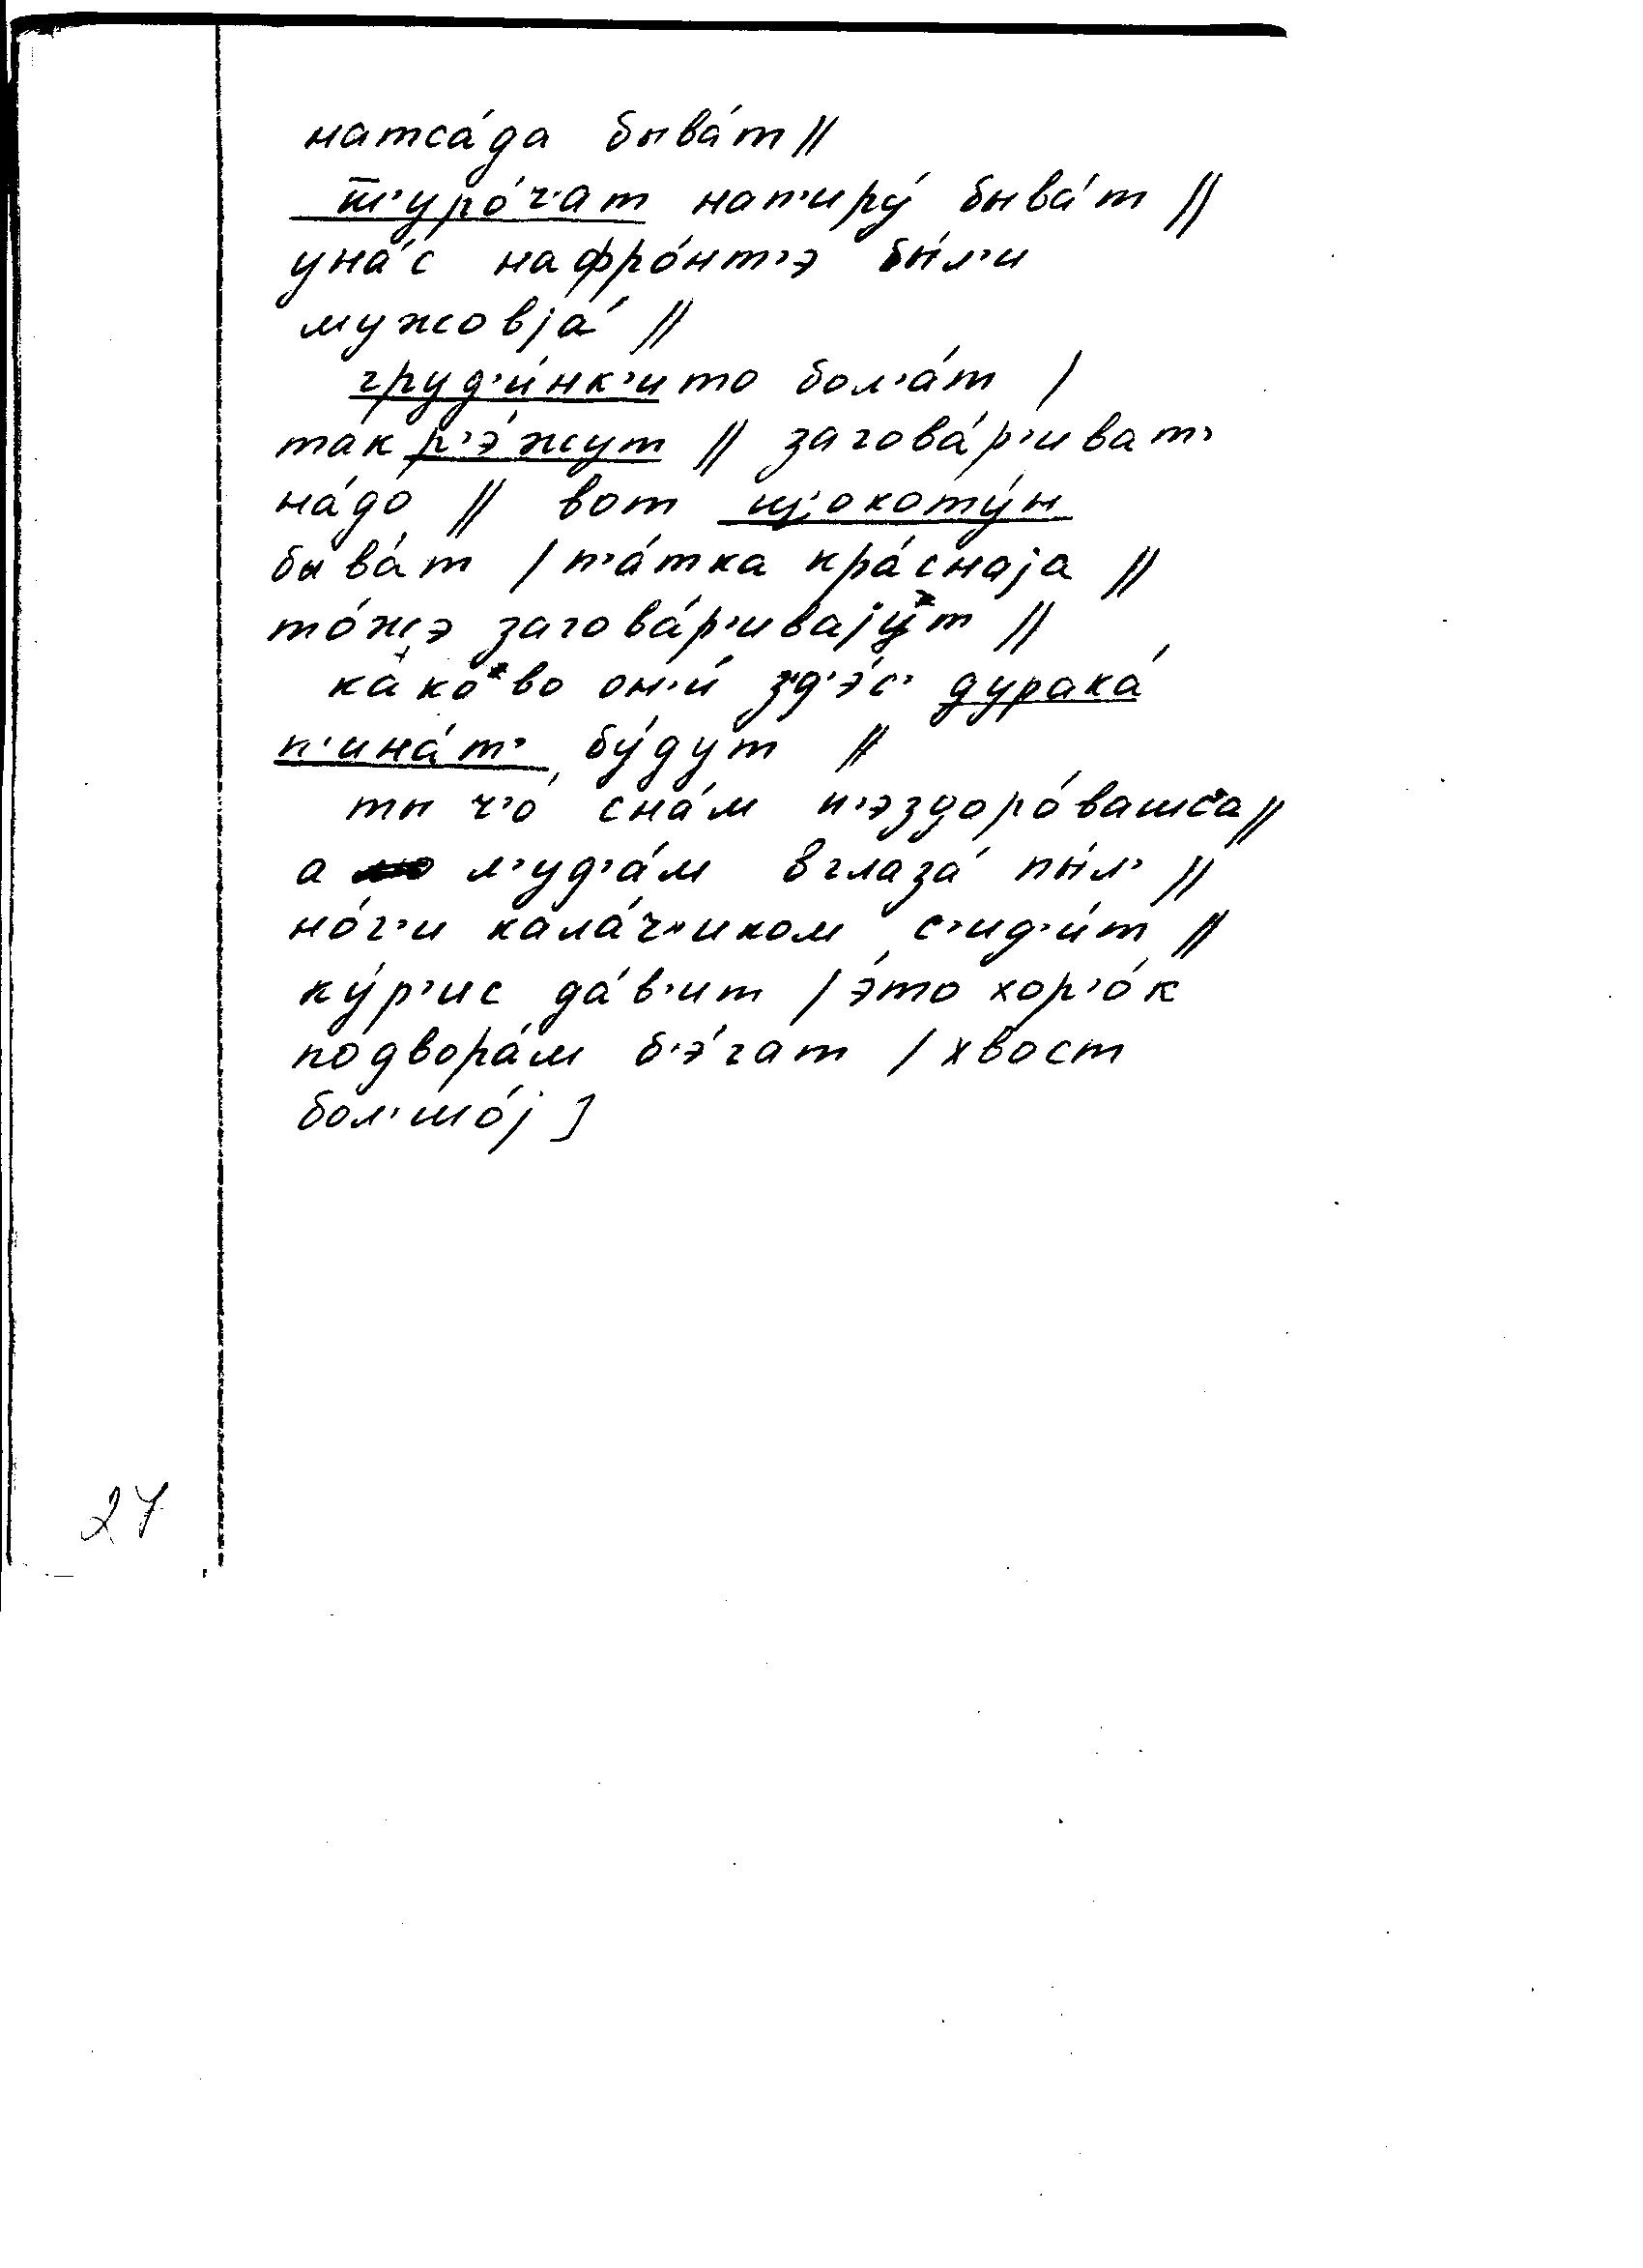 натса́да быва́т //
т̅'уро́ч'ат нап'иру́ быва́т //
уна́с нафро́нт'э бы́л'и
мужовjа́ //
груд'и́нк'ито бол'а́т /
так р'э́жут // загова́р'иват'
на́до // вот щ'окоту́н
быва́т / п'а́тка кра́снаjа //
то́жэ загова́р'иваjут //
како́во он'и́ з'д'э́с' дурака́
п'ина́т' бу́дут //
ты ч'о́ сна́м н'эздоро́вашса //
а л'уд'а́м вглаза́ пы́л' //
но́г'и кала́ч'иком с'ид'и́т //
ку́р'ис да́в'ит / э́то хор'о́к
подвора́м б'э́гат / хвост
бол'шо́j ]
27